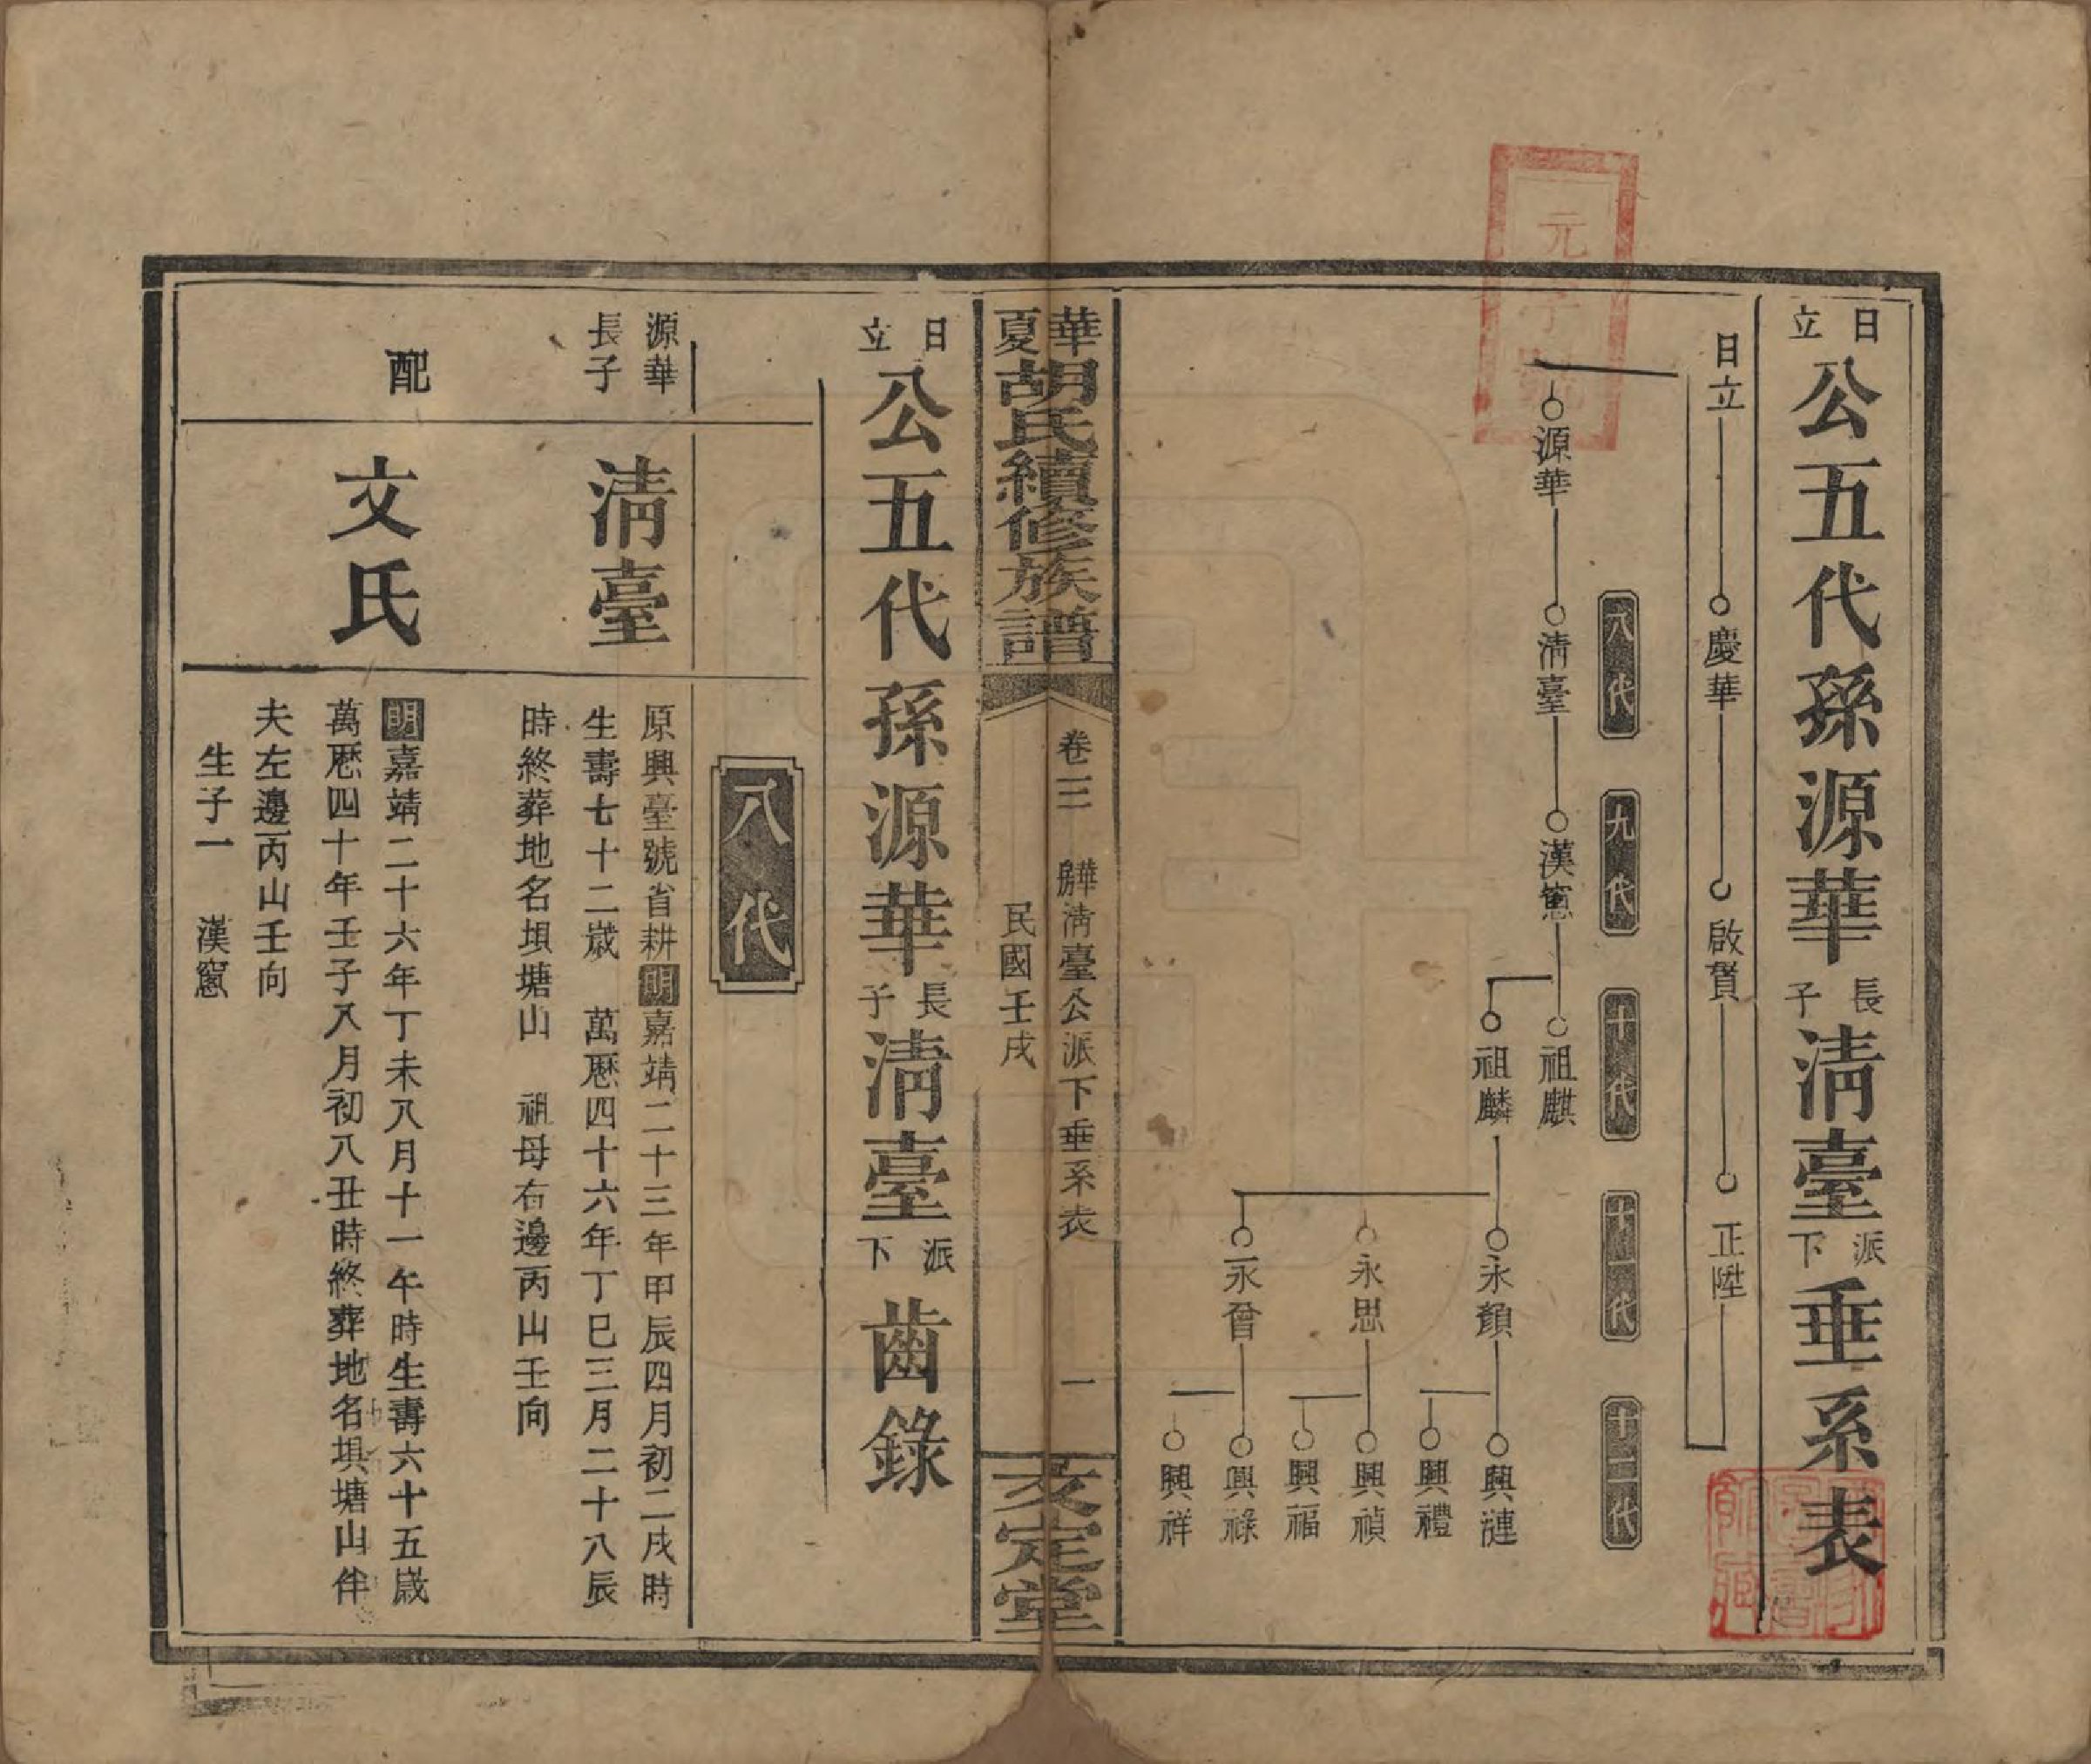 日立公五代孫源華長子淸臺派下垂系表
日立 慶華 啟賢 正陞
八代 九代 十代 十一代 十二代
源華 淸臺 漢窻 祖麒
祖麟 永顏 興漣
興禮
永思 興禎
興福
永晉 興祿
興祥
元字號
華夏胡氏續修族譜
卷三 華房淸臺公派下垂系表 一
民國壬戌
安定堂
日立公五代孫源華長子淸臺派下齒錄
八代
源華長子 淸臺
原興臺號省耕明嘉靖二十三年甲辰四月初二戌時
生壽七十二歲 萬厯四十六年丁巳三月二十八辰
時終葬地名垻塘山 祖母右邊丙山壬向
配 文氏
明嘉靖二十六年丁未八月十一午時生壽六十五歲
萬厯四十年壬子八月初八丑時終葬地名垻塘山伴
夫左邊丙山壬向
生子一 漢窻